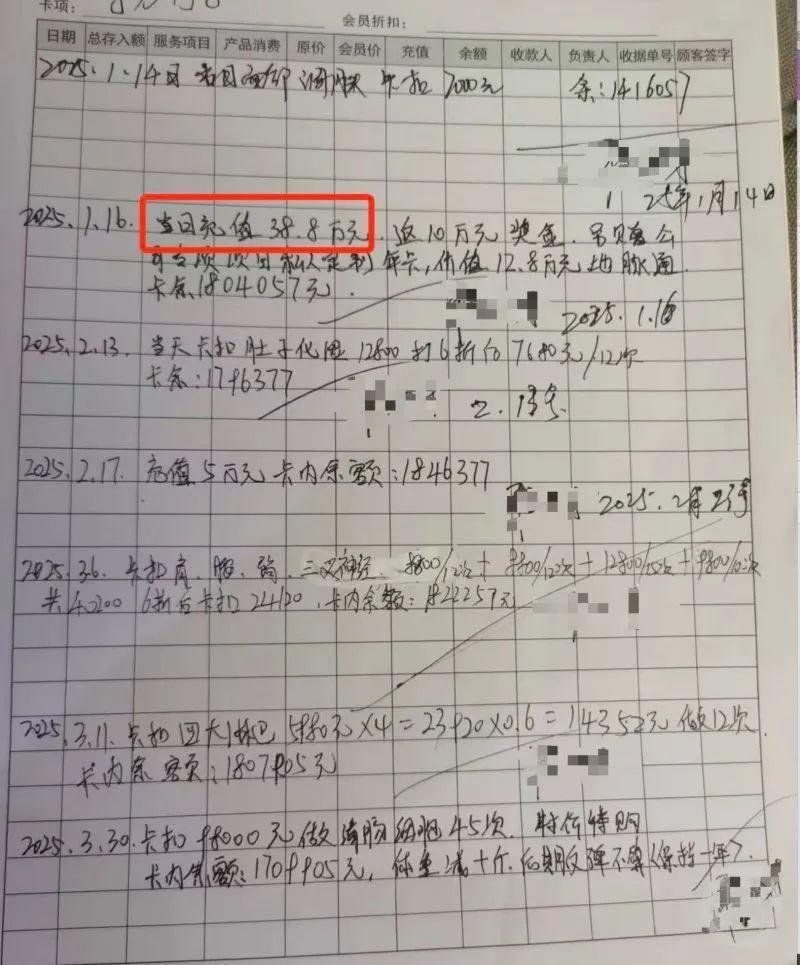 卡项:
会员折扣:
日期 总存入额 服务项目 产品消费 原价 会员价 充值 余额 收款人 负责人 收据单号 顾客签字
2025.1.14日 卡扣 7000元 余:1416057
1月14日
2025.1.16. 当日充值38.8万元. 返10万元奖金.
年卡,价值12.8万元地脉通
卡余1804057元.
2025.1.16
2025.2.13. 当天卡扣肚子化湿12800打6折后7680元/12次
卡余:1796377
2.13
2025.2.17. 充值5万元 卡内余额:1846377
2025.2月
2025.3.6. 卡扣肩、腰、三叉神经. 9800/12次+9800/12次+12800/15次+9800/
共40200 6折后卡扣24120,卡内余额:1822257元
2025.3.11.卡扣四大淋巴5980元×4=23920×0.6=14352元 做12次.
卡内余额:1807905元
2025.3.30.卡扣98000元做 细胞45次. 特价特购
卡内余额:1709905元,体重减十斤.后期反弹不算(保持一年).